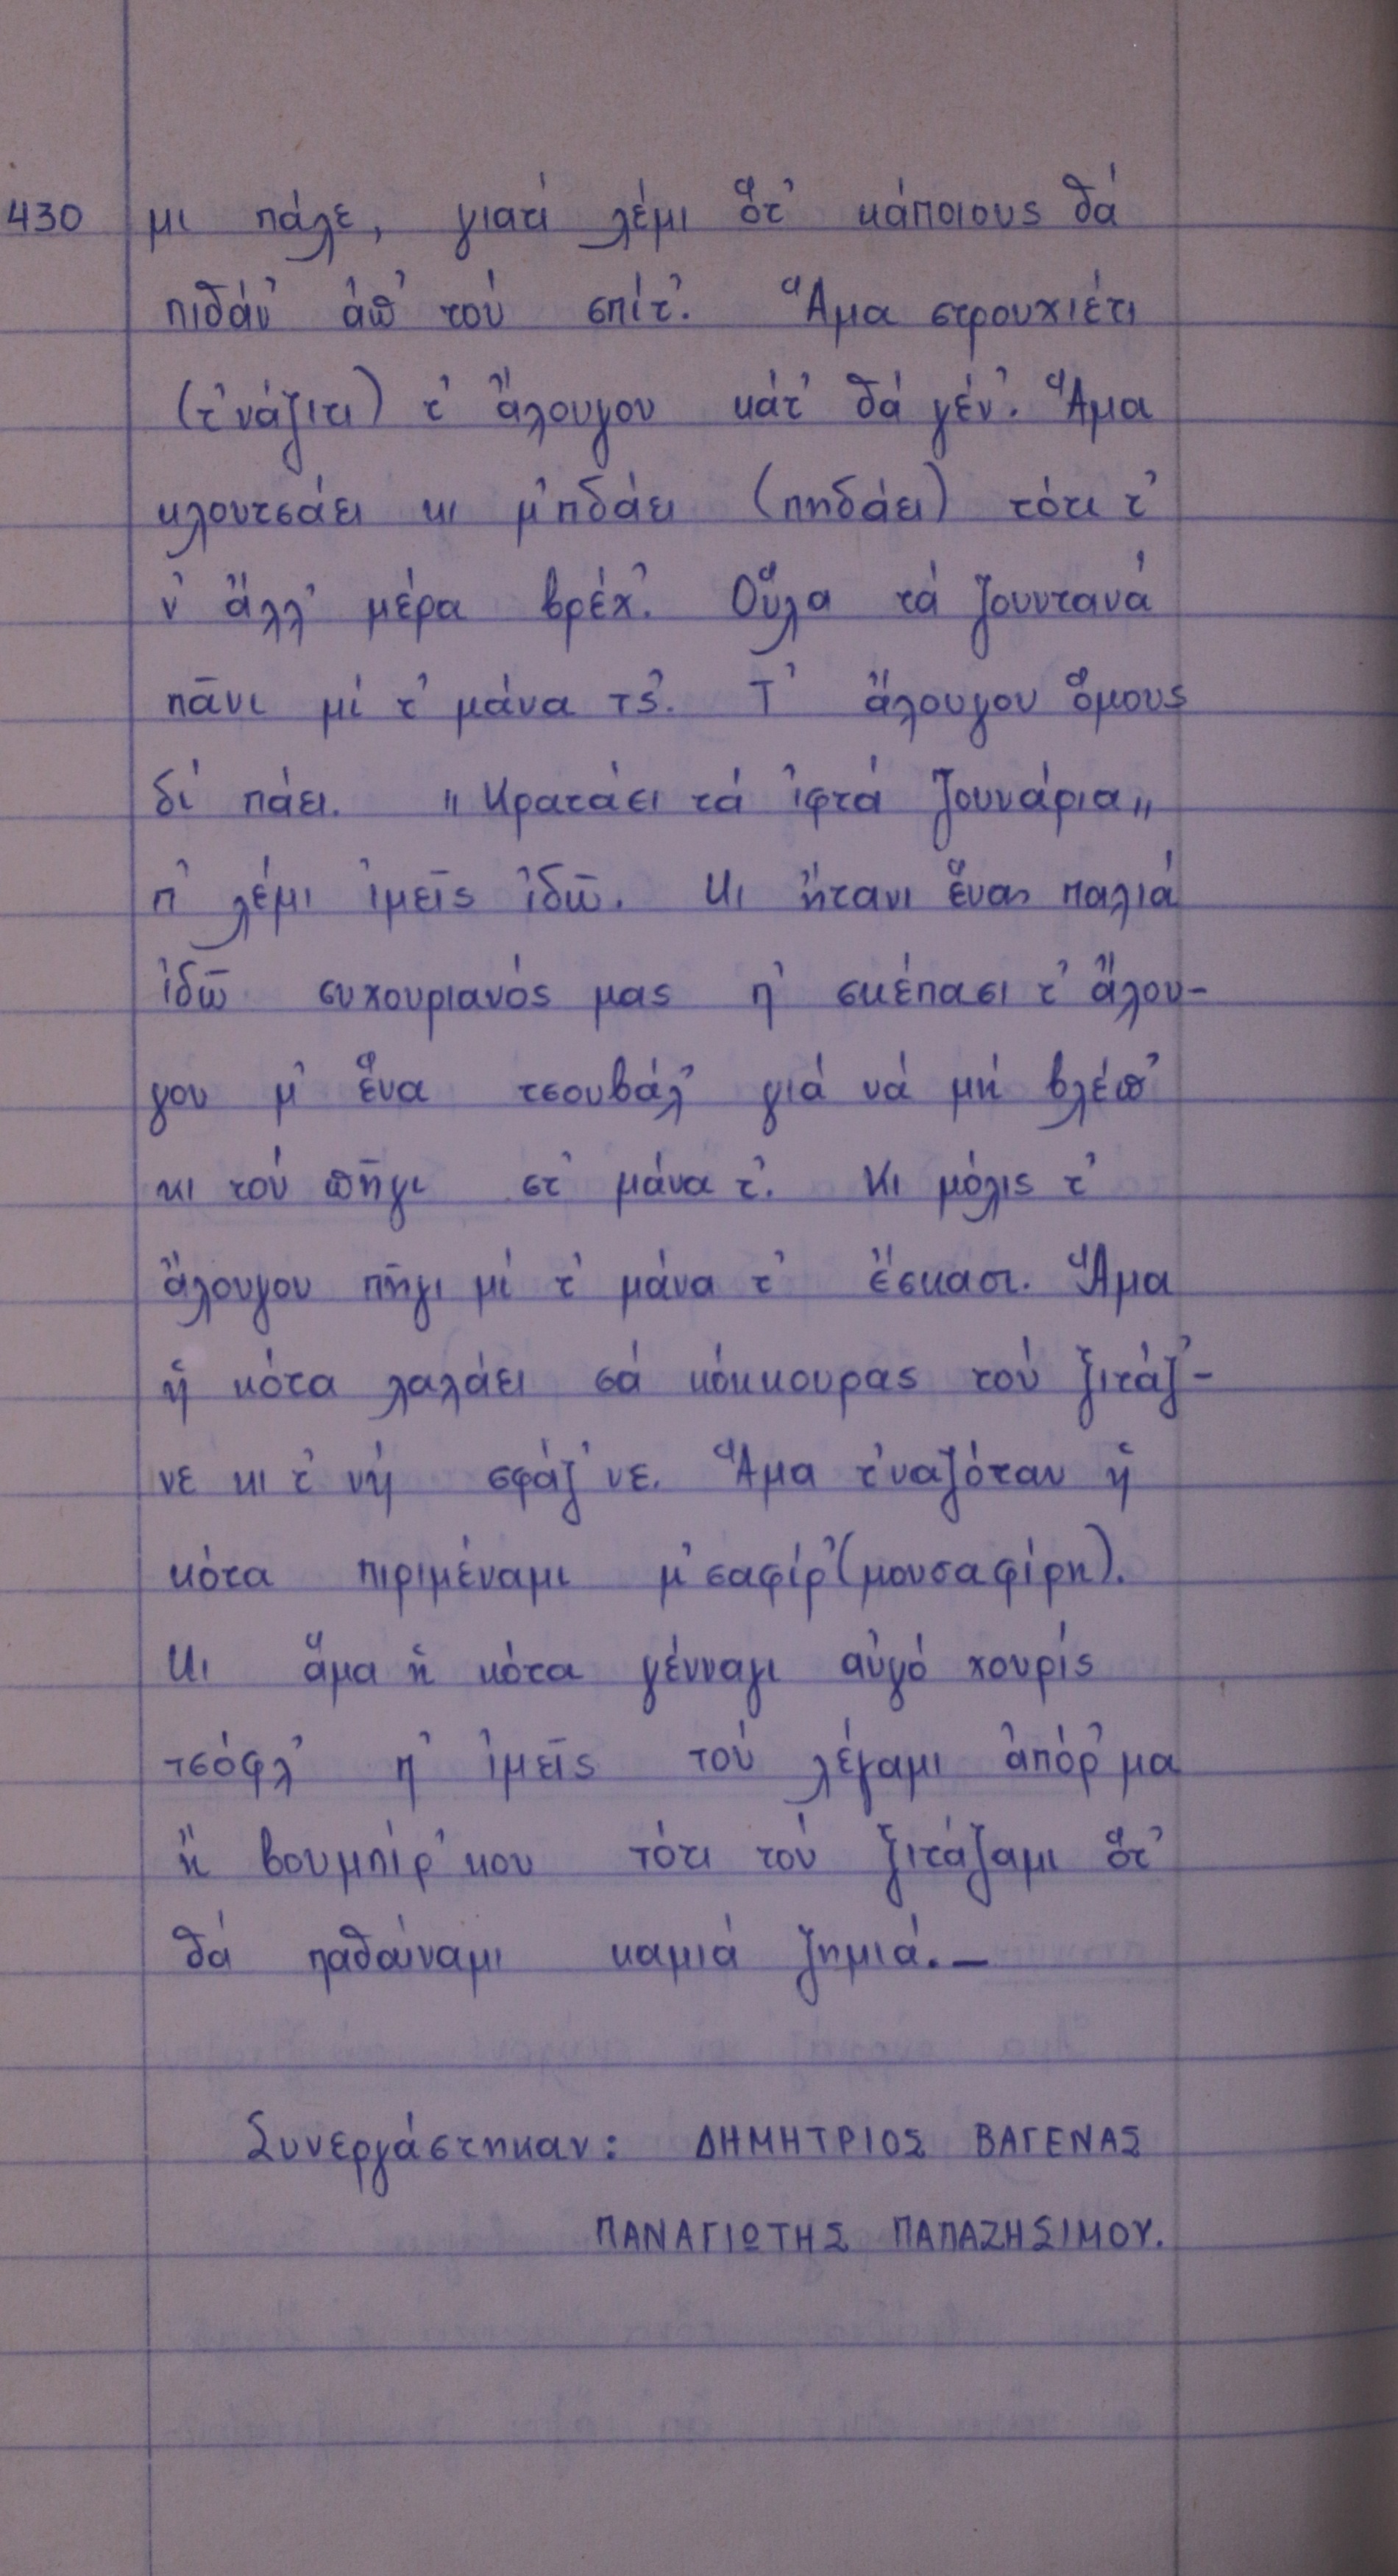 430 μι πάλε, γιατί λέμι ὅτ᾿ κάποιους θά
πιθάν᾿ ἀπ᾿ τού σπίτ᾿. Ἅμα στρουχιέτι
(τ᾿νάζιτι) τ᾿ ἄλουγου κάτ᾿ θά γέν᾿. Ἅμα
κλουτσάει κι μ᾿πδάει (πηδάει) τότι τ᾿
ν᾿ ἄλλ᾿ μέρα βρέχ᾿. Οὗλα τά ζουντανά
πᾶνι μί τ᾿ μάνα τς᾿. Τ᾿ ἄλουγου ὅμους
δί πάει. "Κρατάει τά ἱφτά ζουνάρια"
π᾿ λέμι ἱμεῖς ἰδῶ. Κι ἤτανι ἕνας παλιά
ἰδῶ συχουριανός μας π᾿ σκέπασι τ᾿ ἄλου-
γου μ᾿ ἕνα τσουβάλ᾿ γιά νά μή βλέπ᾿
κι τού πῆγι στ᾿ μάνα τ᾿. Κι μόλις τ᾿
ἄλουγου πῆγι μί τ᾿ μάνα τ᾿ ἔσκασι. Ἅμα
ἡ κότα λαλάει σά κόκκουρας τού ξιτάζ᾿-
νε κι τ᾿ νή σφάζ᾿νε. Ἅμα τ᾿ναζόταν ἡ
κότα πιριμέναμι μ᾿σαφίρ᾿ (μουσαφίρη).
Κι ἅμα ἡ κότα γένναγι αὐγό χουρίς
τσόφλ᾿ π᾿ ἱμεῖς τού λέγαμι ἀπόρ᾿μα
ἤ βουμπίρ᾿κου τότι τού ξιτάζαμι ὅτ᾿
θά παθαίναμι καμιά ζημιά.—
Συνεργάστηκαν: ΔΗΜΗΤΡΙΟΣ ΒΑΓΕΝΑΣ
ΠΑΝΑΓΙΩΤΗΣ ΠΑΠΑΖΗΣΙΜΟΥ.